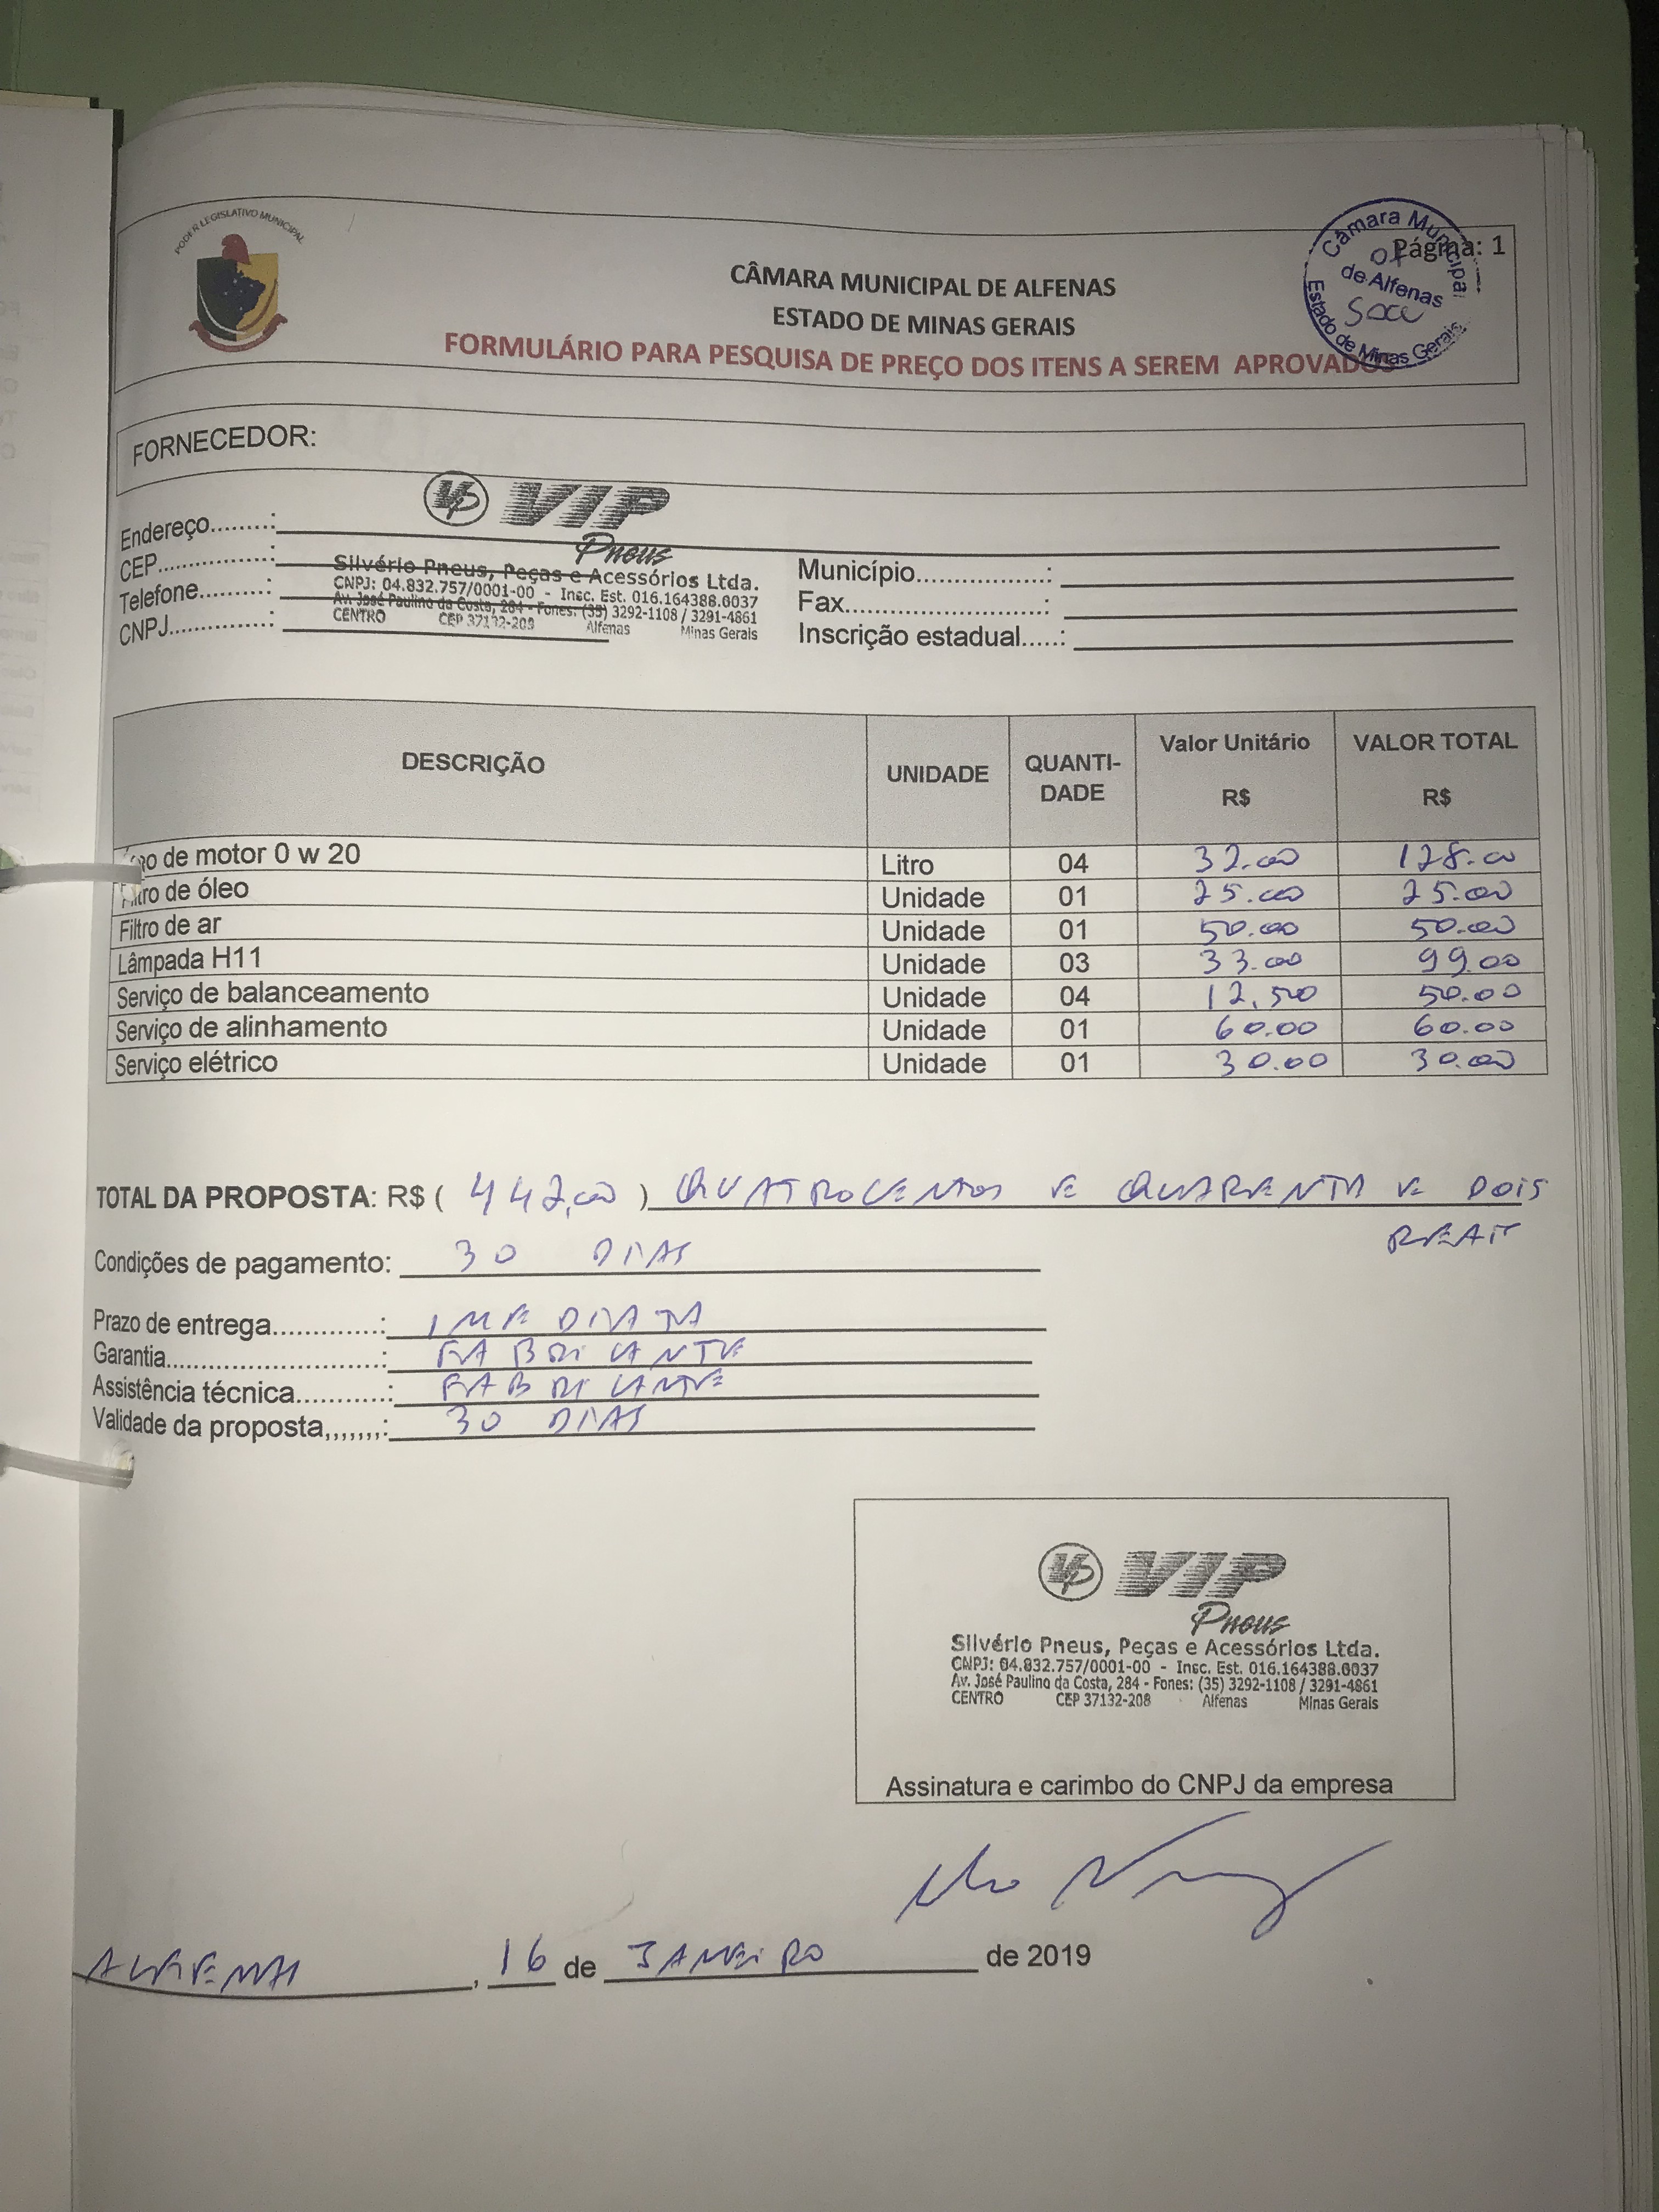 PODER LEGISLATIVO MUNICIPAL
CÂMARA MUNICIPAL DE ALFENAS
ESTADO DE MINAS GERAIS
FORMULÁRIO PARA PESQUISA DE PREÇO DOS ITENS A SEREM APROVADOS
Página: 1
Câmara Municipal
de Alfenas
Estado de Minas Gerais
FORNECEDOR:
VIP
Pneus
Silvério Pneus, Peças e Acessórios Ltda.
CNPJ: 04.832.757/0001-00 - Insc. Est. 016.164388.0037
Av. José Paulino da Costa, 284 - Fones: (35) 3292-1108 / 3291-4861
CENTRO CEP 37132-208 Alfenas Minas Gerais
Endereço........:
CEP..............:
Telefone.........:
CNPJ.............:
Município.................:
Fax.........................:
Inscrição estadual.....:
DESCRIÇÃO UNIDADE QUANTI-DADE Valor Unitário R$ VALOR TOTAL R$
de motor 0 w 20 Litro 04 32.00 128.00
Filtro de óleo Unidade 01 25.00 25.00
Filtro de ar Unidade 01 50.00 50.00
Lâmpada H11 Unidade 03 33.00 99.00
Serviço de balanceamento Unidade 04 12,50 50.00
Serviço de alinhamento Unidade 01 60.00 60.00
Serviço elétrico Unidade 01 30.00 30.00
TOTAL DA PROPOSTA: R$ ( 442,00 ) QUATROCENTOS E QUARENTA E DOIS
REAIS
Condições de pagamento: 30 DIAS
Prazo de entrega.............: IMEDIATA
Garantia..........................: FABRICANTE
Assistência técnica...........: FABRICANTE
Validade da proposta,,,,,,,: 30 DIAS
VIP
Pneus
Silvério Pneus, Peças e Acessórios Ltda.
CNPJ: 04.832.757/0001-00 - Insc. Est. 016.164388.0037
Av. José Paulino da Costa, 284 - Fones: (35) 3292-1108 / 3291-4861
CENTRO CEP 37132-208 Alfenas Minas Gerais
Assinatura e carimbo do CNPJ da empresa
ALFENAS, 16 de JANEIRO de 2019